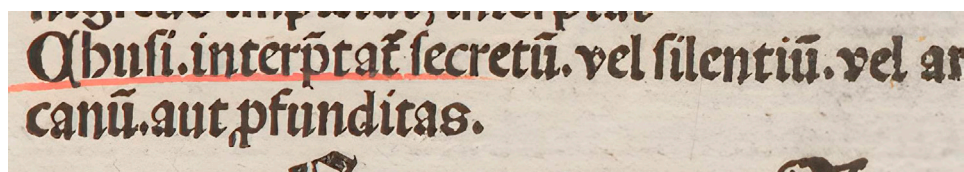 Chuſi.interp̄tat᷑ ſecretū.vel ſilentiū.vel ar
canū.aut ꝓfunditas.